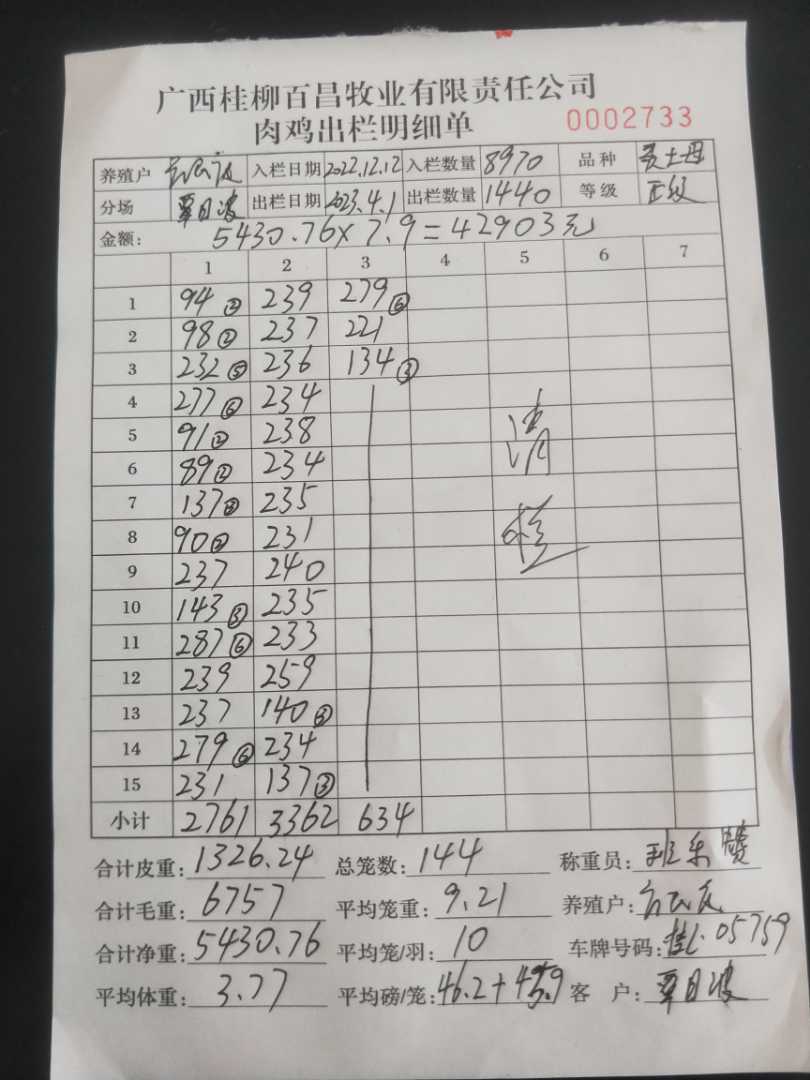 广西桂柳百昌牧业有限责任公司
肉鸡出栏明细单 0002733
养殖户 入栏日期 2022.12.12 入栏数量 8970 品种 土母
分场 覃日波 出栏日期 2023.4.1 出栏数量 1440 等级 正级
金额: 5430.76×7.9=42903元
1 2 3 4 5 6 7
1 94② 239 279⑥
2 98② 237 221
3 232⑤ 236 134③
4 277⑥ 234
5 91② 238
6 89② 234
7 137③ 235
8 90② 231
9 237 240
10 143③ 235
11 287⑥ 233
12 239 259
13 237 140③
14 279⑥ 234
15 231 137③
清
小计 2761 3362 634
合计皮重: 1326.24 总笼数: 144 称重员: 班乐赞
合计毛重: 6757 平均笼重: 9.21 养殖户:
合计净重: 5430.76 平均笼/羽: 10 车牌号码: 桂L·05759
平均体重: 3.77 平均磅/笼: 46.2+45.9 客 户: 覃日波